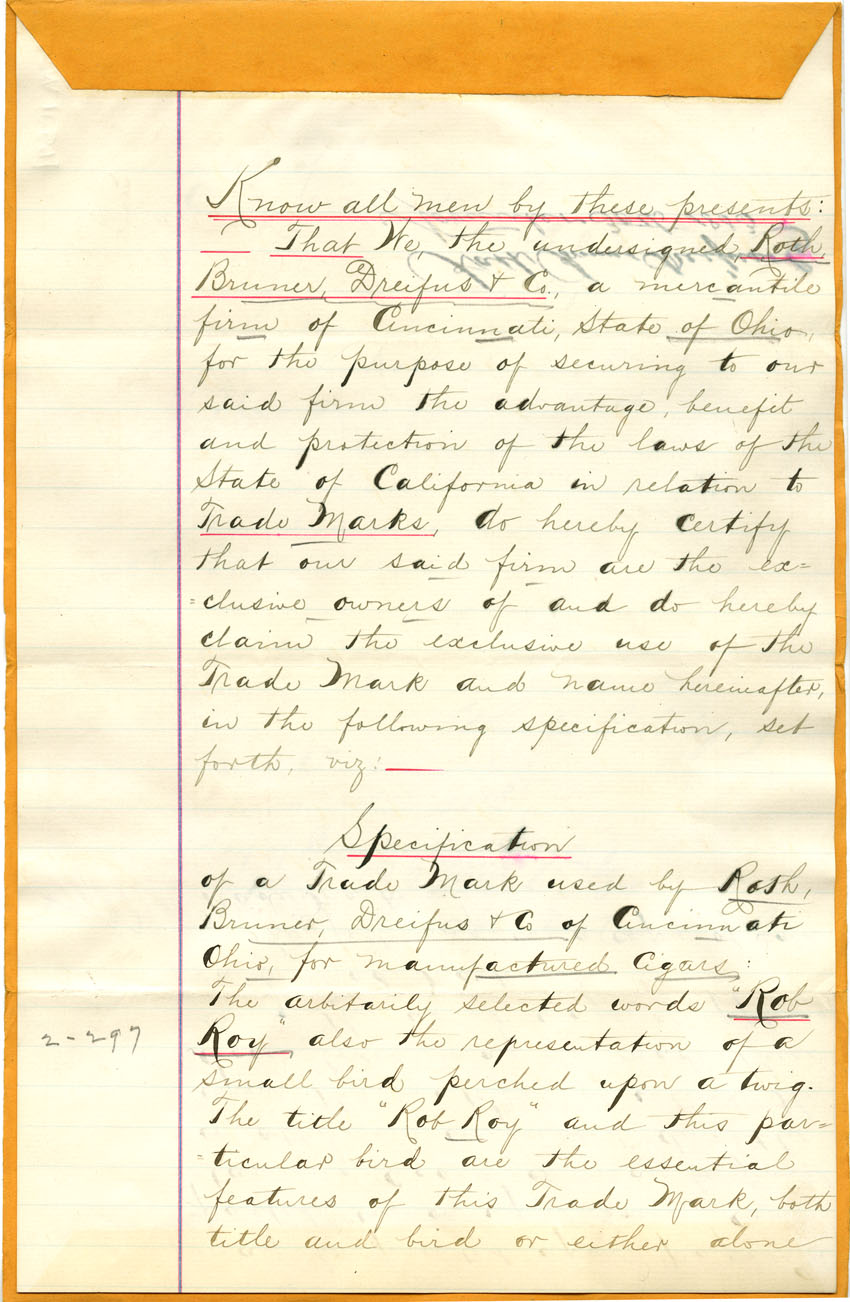 Know all men by these presents:
That We, the undersigned, Roth,
Bruner, Dreifus & Co., a mercantile
firm of Cincinnati, State of Ohio,
for the purpose of securing to our
said firm the advantage, benefit
and protection of the laws of the
State of California in relation to
Trade Marks, do hereby certify
that our said firm are the ex=
=clusive owners of and do hereby
claim the exclusive use of the
Trade Mark and name hereinafter,
in the following specification, set
forth, viz:
Specification
of a Trade Mark used by Roth,
Bruner, Dreifus & Co of Cincinnati
Ohio, for manufactured Cigars:
The arbitarily selected words "Rob
2-297
Roy" also the representation of a
small bird perched upon a twig.
The title "Rob Roy" and this par=
=ticular bird are the essential
features of this Trade Mark, both
title and bird or either alone